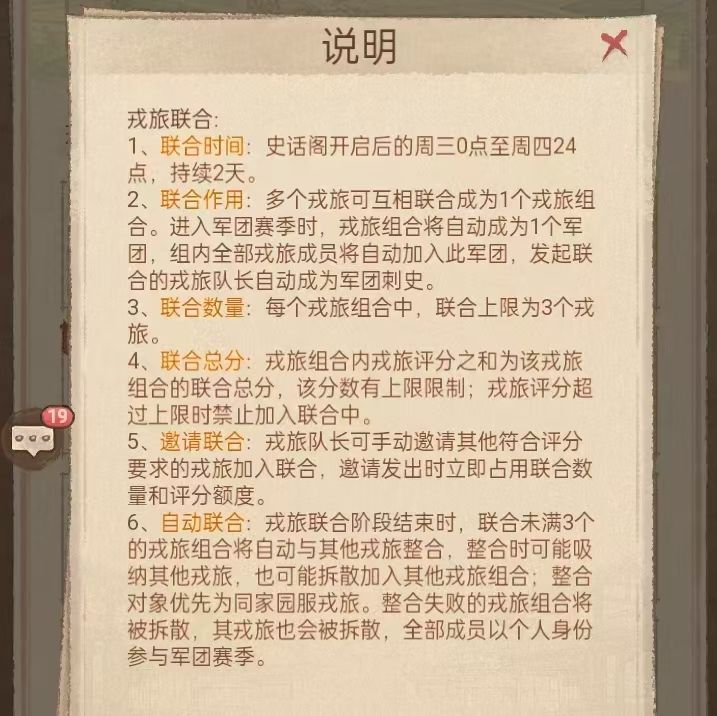 说明
戎旅联合:
1、联合时间：史话阁开启后的周三0点至周四24
点，持续2天。
2、联合作用：多个戎旅可互相联合成为1个戎旅组
合。进入军团赛季时，戎旅组合将自动成为1个军
团，组内全部戎旅成员将自动加入此军团，发起联
合的戎旅队长自动成为军团刺史。
3、联合数量：每个戎旅组合中，联合上限为3个戎
旅。
4、联合总分：戎旅组合内戎旅评分之和为该戎旅
组合的联合总分，该分数有上限限制；戎旅评分超
过上限时禁止加入联合中。
5、邀请联合：戎旅队长可手动邀请其他符合评分
要求的戎旅加入联合，邀请发出时立即占用联合数
量和评分额度。
19
6、自动联合：戎旅联合阶段结束时，联合未满3个
的戎旅组合将自动与其他戎旅整合，整合时可能吸
纳其他戎旅，也可能拆散加入其他戎旅组合；整合
对象优先为同家园服戎旅。整合失败的戎旅组合将
被拆散，其戎旅也会被拆散，全部成员以个人身份
参与军团赛季。